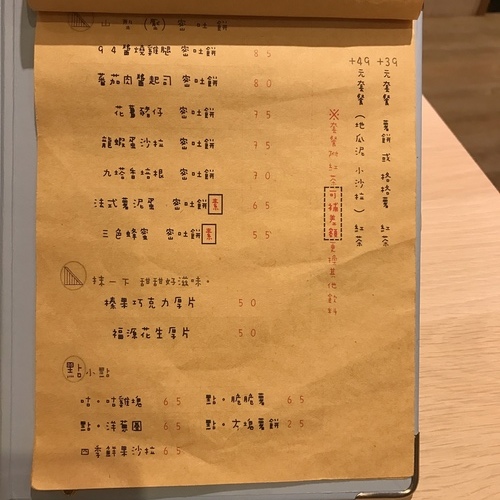 山型(製)密吐餅
94醬燒雞腿 密吐餅 85
蕃茄肉醬起司 密吐餅 80
花薯豬仔 密吐餅 75
龍蝦蛋沙拉 密吐餅 75
九塔香培根 密吐餅 70
法式薯泥蛋 密吐餅 素 65
三色蜂蜜 密吐餅 素 55
抹一下 甜甜好滋味。
榛果巧克力厚片 50
福源花生厚片 50
點 小點
咕。咕雞塊 65
點。脆脆薯 65
點。洋蔥圈 65
點。大塊薯餅 25
四季鮮果沙拉 65
+39元套餐 薯餅或格格薯 紅茶
+49元套餐(地瓜泥 小沙拉)紅茶
※套餐附紅茶可補差額更換其他飲料